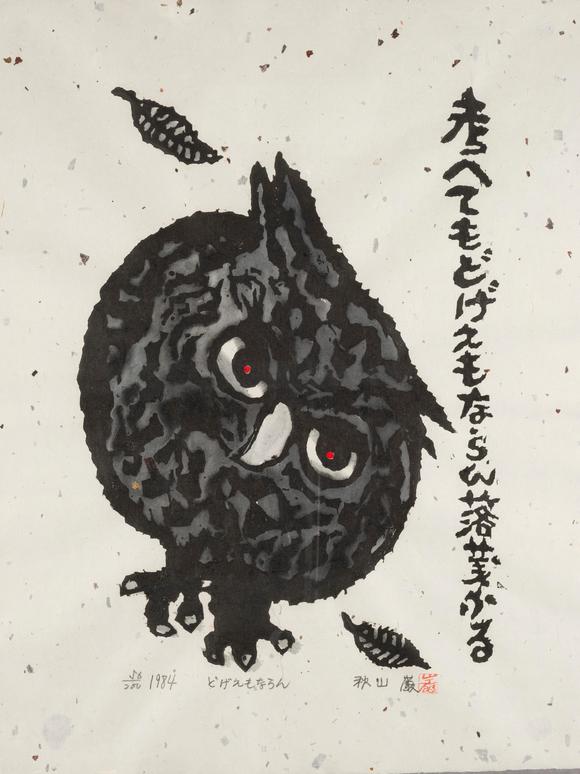 考へてもどげえもならん落葉ふる
56/200 1984 どげえもならん 秋山 巌
巌